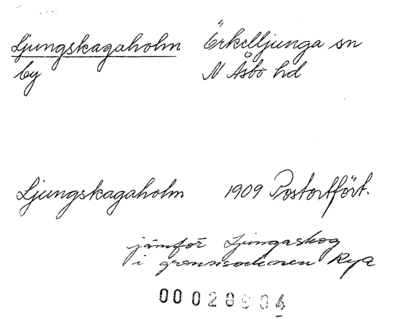 Ljungskagaholm Örkelljunga sn
by N Åsbo hd
Ljungskagaholm 1909 Postortfört.
jämför Ljungaskog
i grannsocknen Rya